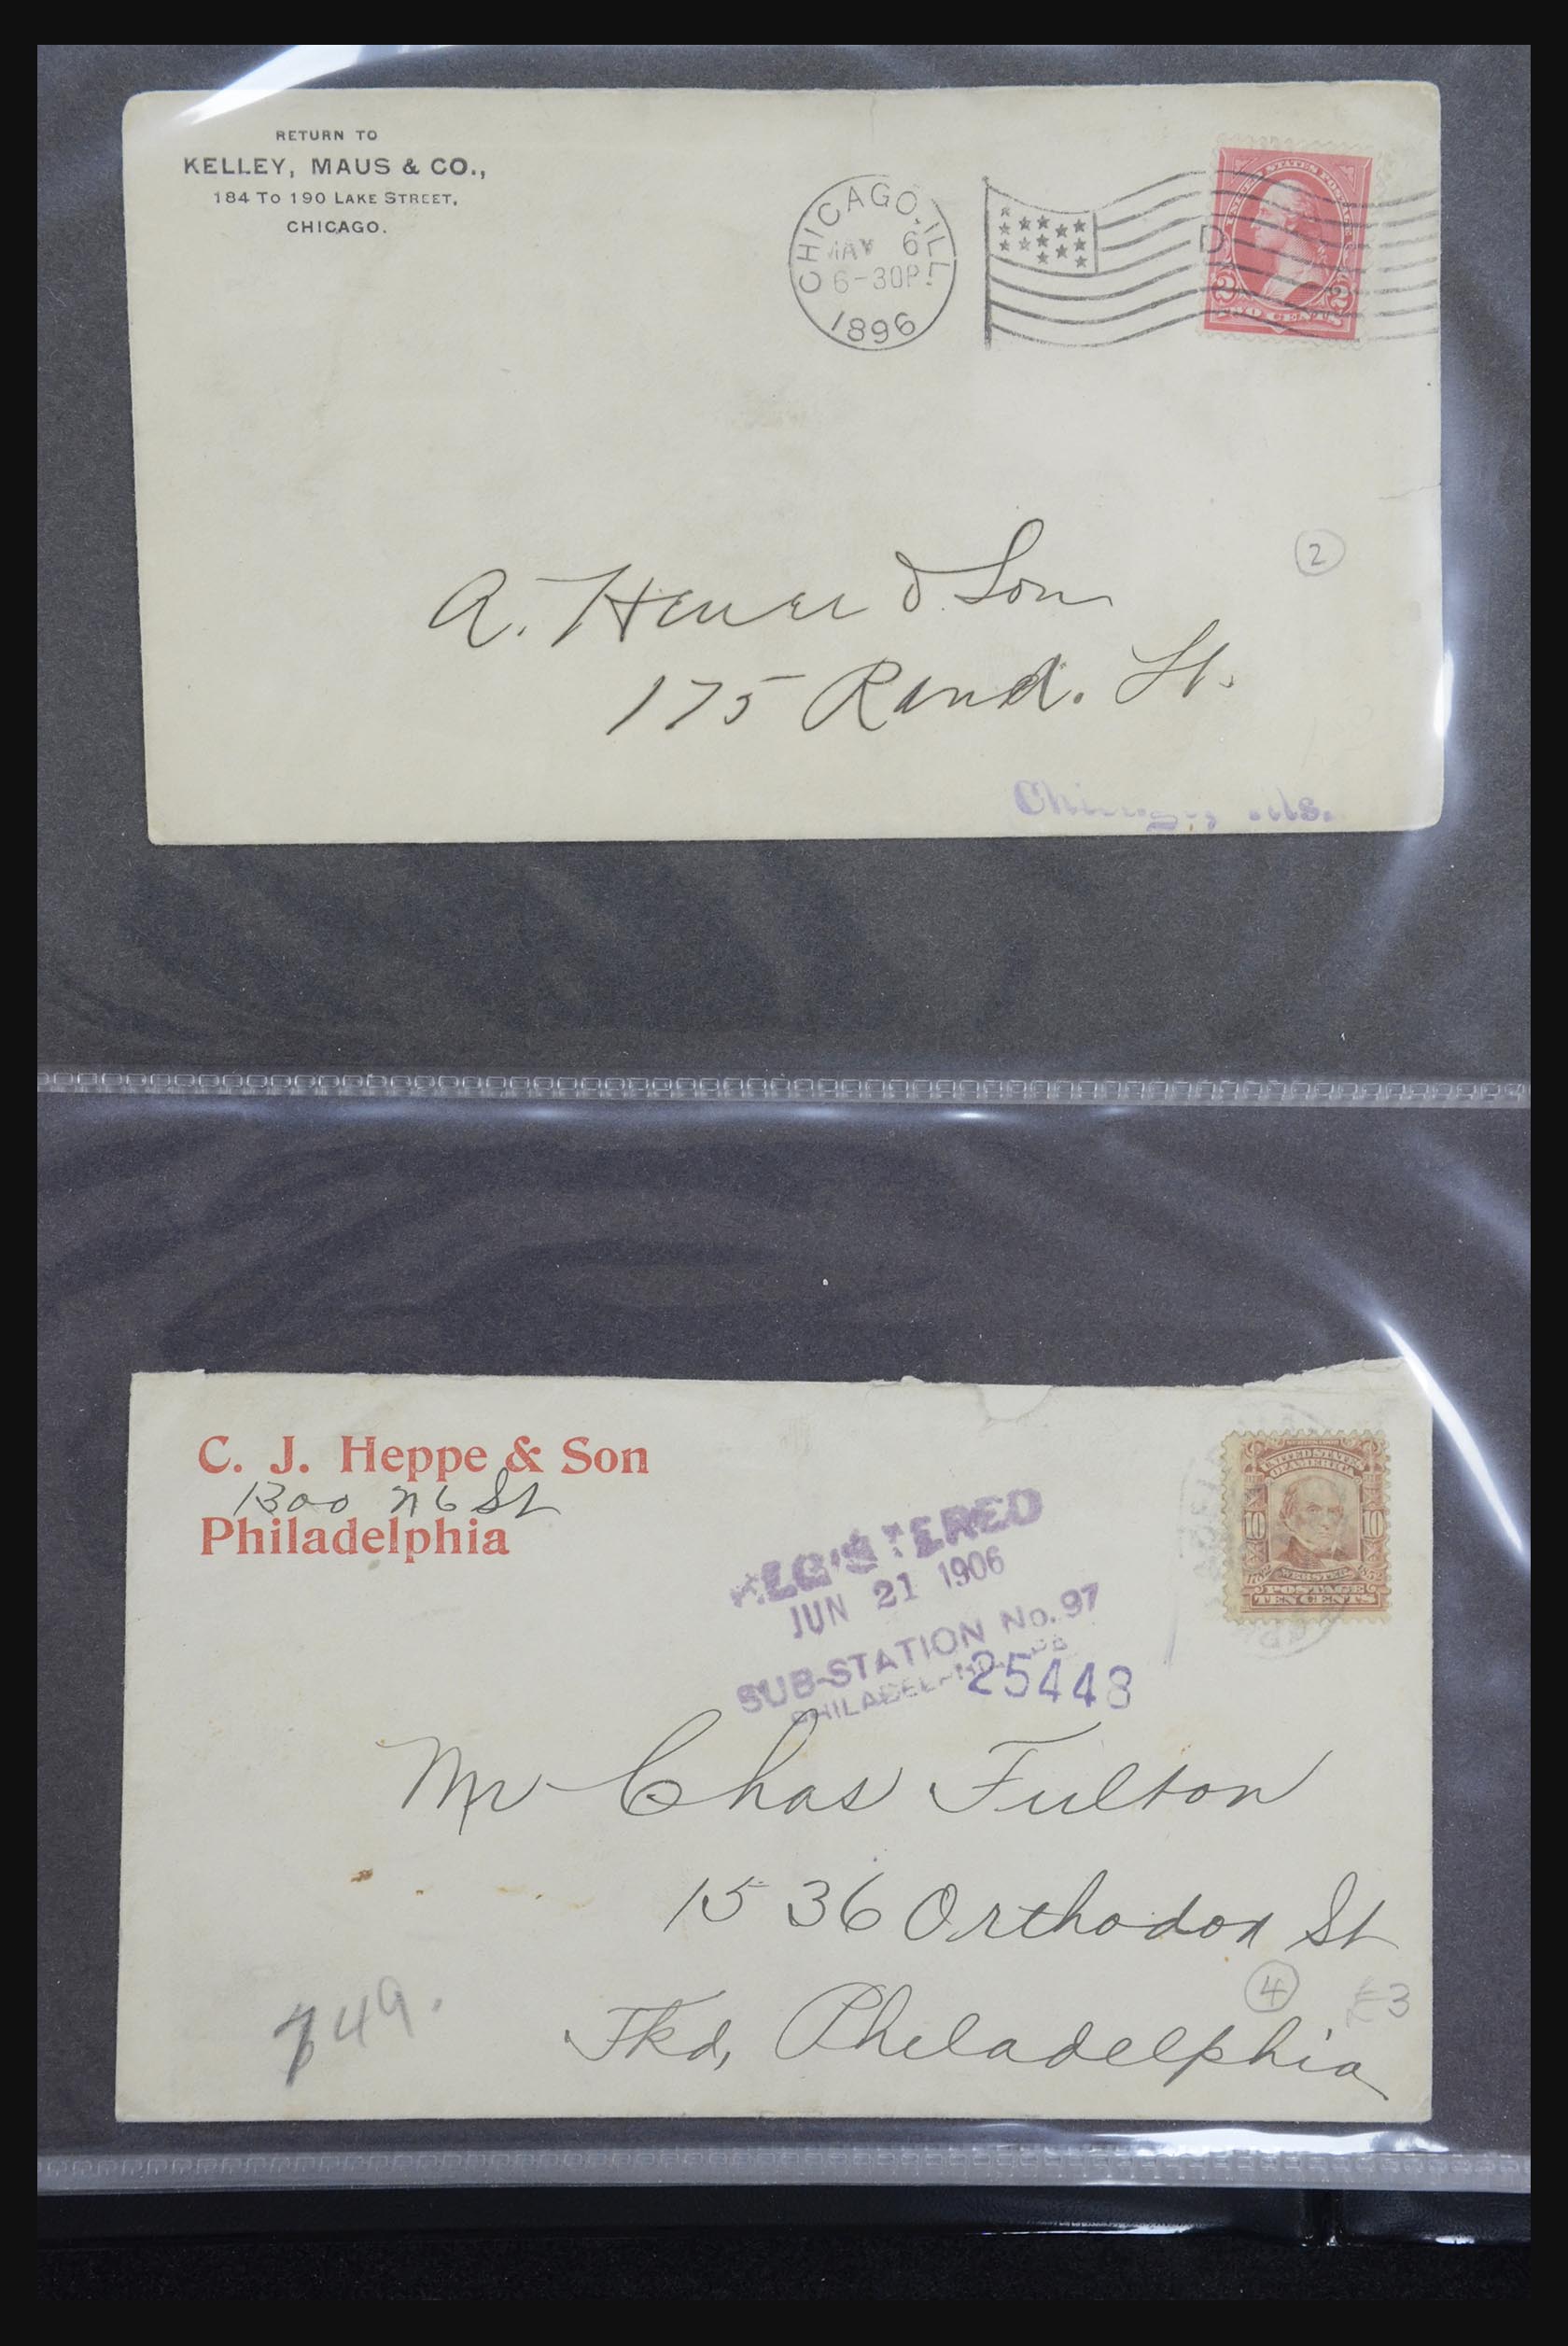 RETURN TO
KELLEY, MAUS & CO.,
184 TO 190 LAKE STREET,
CHICAGO.
CHICAGO, ILL.
MAY 6
6-30P
1896
D
UNITED STATES POSTAGE
2 2
TWO CENTS
A. & Son
175 Rand. St.
2
C. J. Heppe & Son
1300 N 6 St
Philadelphia
REGISTERED
JUN 21 1906
SUB-STATION No. 97
PHILADELPHIA
25448
UNITED STATES
OF AMERICA
10 10
WEBSTER
POSTAGE
TEN CENTS
Mr Chas Fulton
1536 Orthodox St
Fkd, Philadelphia
4
£3
749.